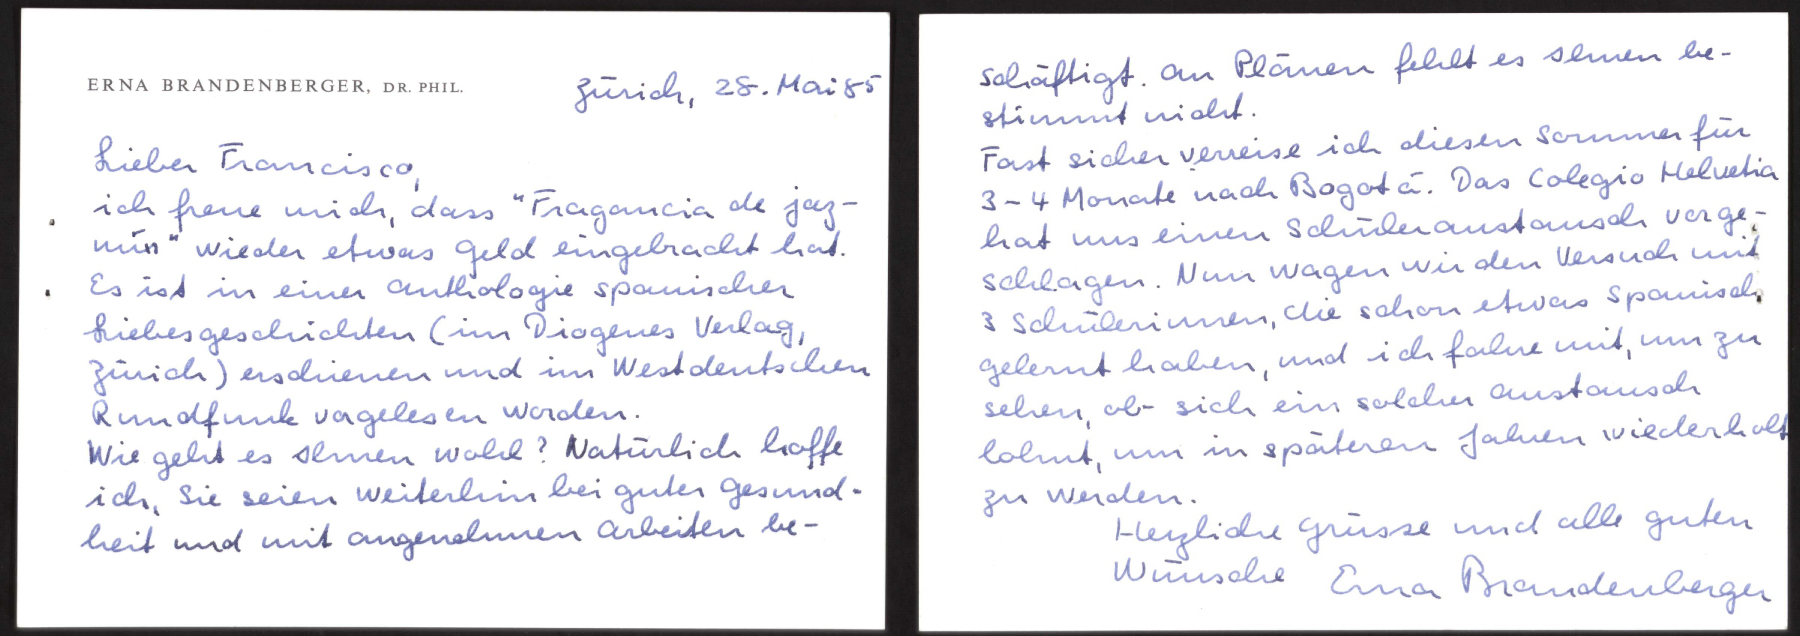 ERNA BRANDENBERGER, DR. PHIL.
Zürich, 28. Mai 85
Lieber Francisco,
ich freue mich, dass "Fragancia de jaz-
mín" wieder etwas Geld eingebracht hat.
Es ist in einer Anthologie spanischer
Liebesgeschichten (im Diogenes Verlag,
Zürich) erschienen und im Westdeutschen
Rundfunk vorgelesen worden.
Wie geht es Ihnen wohl? Natürlich hoffe
ich, Sie seien weiterhin bei guter Gesund-
heit und mit angenehmen Arbeiten be-
schäftigt. An Plänen fehlt es Ihnen be-
stimmt nicht.
Fast sicher verreise ich diesen Sommer für
3-4 Monate nach Bogotá. Das Colegio Helvetia
hat uns einen Schüleraustausch vorge-
schlagen. Nun wagen wir den Versuch mit
3 Schülerinnen, die schon etwas Spanisch
gelernt haben, und ich fahre mit, um zu
sehen, ob sich ein solcher Austausch
lohnt, um in späteren Jahren wiederholt
zu werden.
Herzliche Grüsse und alle guten
Wünsche Erna Brandenberger